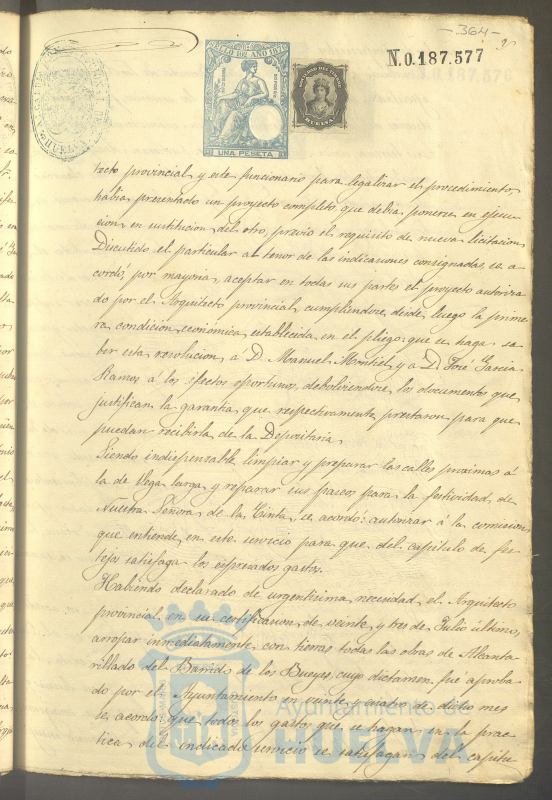 364
N.0.187.577
SELLO 10º AÑO 1876
UNA PESETA
HUELVA
tecto provincial y este funcionario para legalizar el procedimiento,
habia presentado un proyecto completo que debia ponerse en ejecu-
cion en sustitucion del otro, previo el requisito de nueva licitacion.
Discutido el particular al tenor de las indicaciones consignadas, se a-
cordó, por mayoria, aceptar en todas sus partes el proyecto autoriza-
do por el Arquitecto provincial, cumpliendose, desde luego la prime-
ra condición económica, establecida en el pliego: que se haga sa-
ber esta resolucion a D. Manuel Montiel y a D. José Garcia
Ramos á los efectos oportunos, debolviendose los documentos que
justifican la garantia, que respectivamente prestaron para que
puedan recibirla de la Depositaria.
Siendo indispensable limpiar y preparar las calles proximas á
la de Vega larga y reparar sus paseos para la festividad de
Nuestra Señora de la Cinta, se acordó: autorizar á la comision
que entiende en este servicio para que del capitulo de fes-
tejos satisfaga los espresados gastos.
Habiendo declarado de urgentisima necesidad el Arquitecto
provincial en su certificacion de veinte y tres de Julio último,
arropar inmediatamente con tierras todas las obras de Alcanta-
rillado del Barrido de los Bueyes, cuyo dictamen fue aproba-
do por el Ayuntamiento en veinte y cuatro de dicho mes
se acordó: que todos los gastos que se hagan en la prac-
tica del indicado servicio se satisfagan del capitu-
Ayuntamiento de
HUELVA